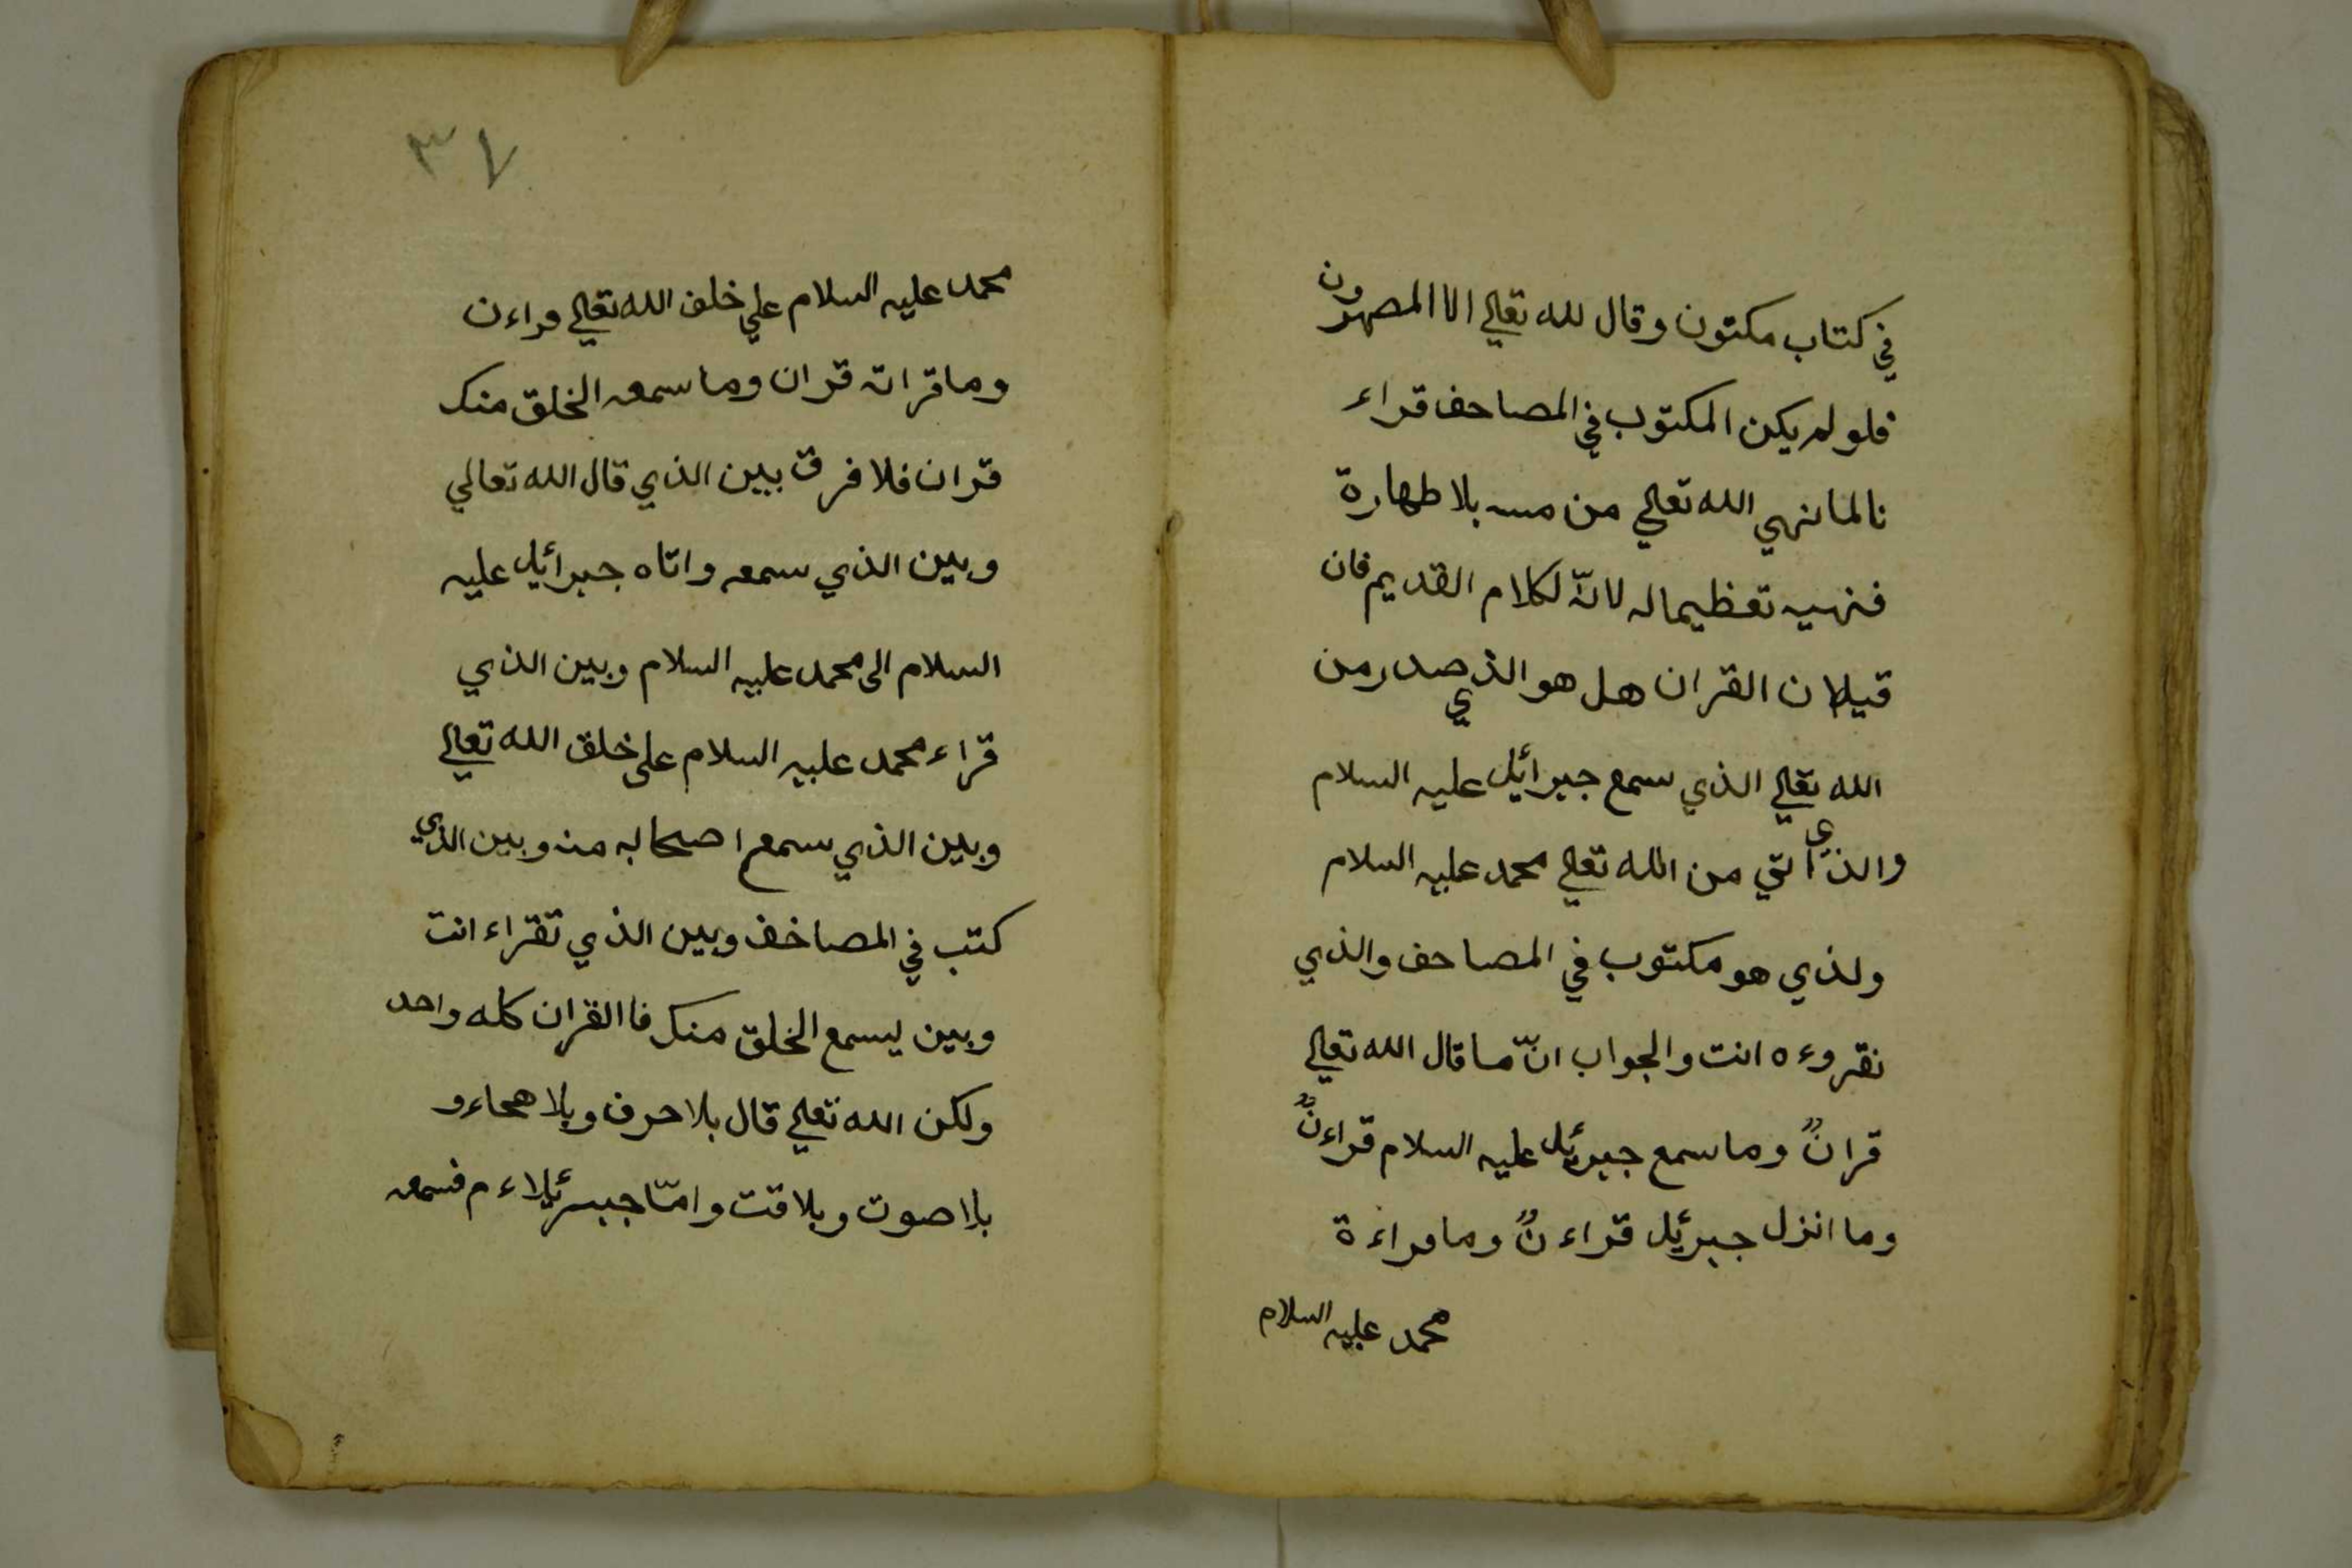 في كتاب مكتون وقال لله تعالي الا المصهرون
فلو لم يكن المكتوب في المصاحف قراء
نالما نهي الله تعالي من مسه بلا طهارة
فنهيه تعظيما له لانّه لكلام القديم فان
قيلان القران هل هو الذي صدر من
الله تعالي الذي سمع جبرائيل عليه السلام
والذي اتي من الله تعالي محمد عليه السلام
ولذي هو مكتوب في المصاحف والذي
نقروءه انت والجواب انّ ما قال الله تعالي
قرانٌ وما سمع جبرئيل عليه السلام قراءنٌ
وما انزل جبرئيل قراءنٌ وما قراءة
محمد عليه السلام
٣٧
محمد عليه السلام علي خلف الله تعالي قراءن
وما قراته قران وما سمعه الخلق منك
قران فلا فرق بين الذي قال الله تعالي
وبين الذي سمعه واتاه جبرائيل عليه
السلام الى محمد عليه السلام وبين الذي
قراء محمد عليه السلام على خلق الله تعالي
وبين الذي سمع اصحابه منه وبين الذي
كتب في المصاخف وبين الذي تقراء انت
وبين ليسمع الخلق منك فا القران كله واحد
ولكن الله تعالي قال بلا حرف وبلا هجاء و
بلا صوت وبلا قت وامّا جبرئيلاء م فسمعه